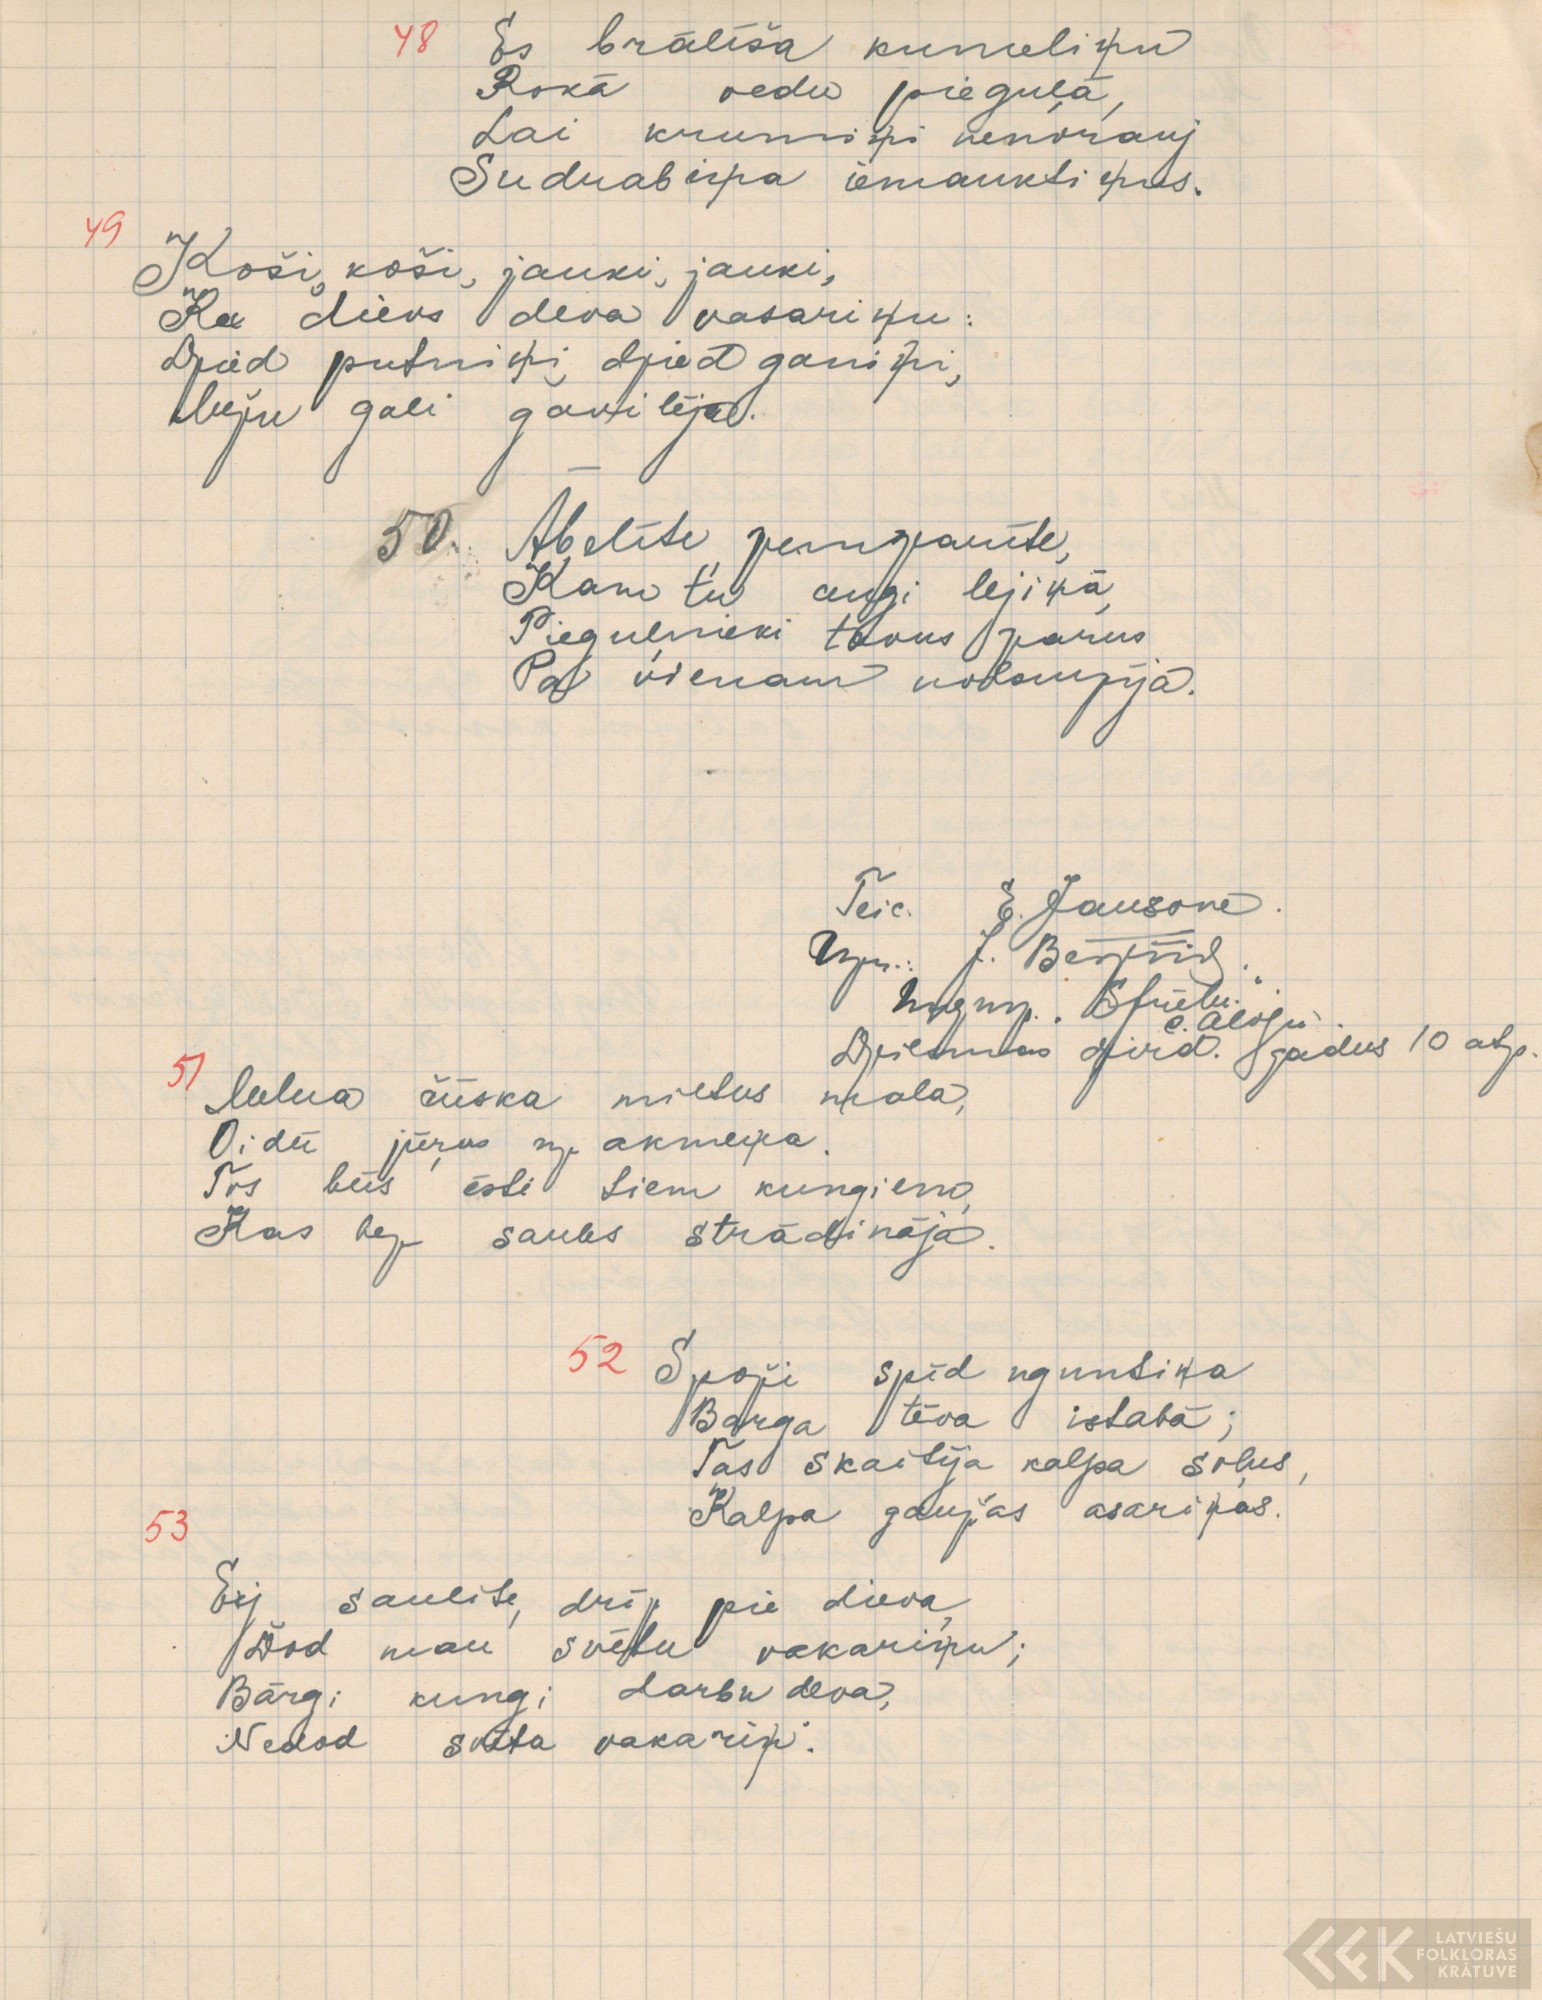 48 Es brālīša kumeliņu
Rokā vedu pieguļā,
Lai krūmiņi nenorauj
Sudrabiņa iemauktiņus.
49
Koši, koši, jauki, jauki,
Ka dievs deva vasariņu:
Dzied putniņi, dzied ganiņi,
Mežu gali gavilēja.
50. Ābelīte, zemzarīte,
Kam tu augi lejiņā,
Pieguļnieki tavus zarus
Pa vienam nolauzīja.
Teic. E. Jansone.
Uzr.: J. Bērziņš.
c. Aloju
Dziesmas dzird. gadus 10 atp.
51
Melna čūska miltus mala,
Vidū jūras uz akmeņa.
Tos būs ēsti tiem kungiem,
Kas bez saules strādināja.
52 Spoži spīd uguntiņa
Barga tēva istabā;
Tas skaitīja kalpa soļus,
Kalpa gaužas asariņas.
53
Ej saulīte, drīz pie dieva,
Dod man svētu vakariņu;
Bārgi kungi darbu deva,
Nedod svēta vakariņ'.
LATVIEŠU
FOLKLORAS
KRĀTUVE